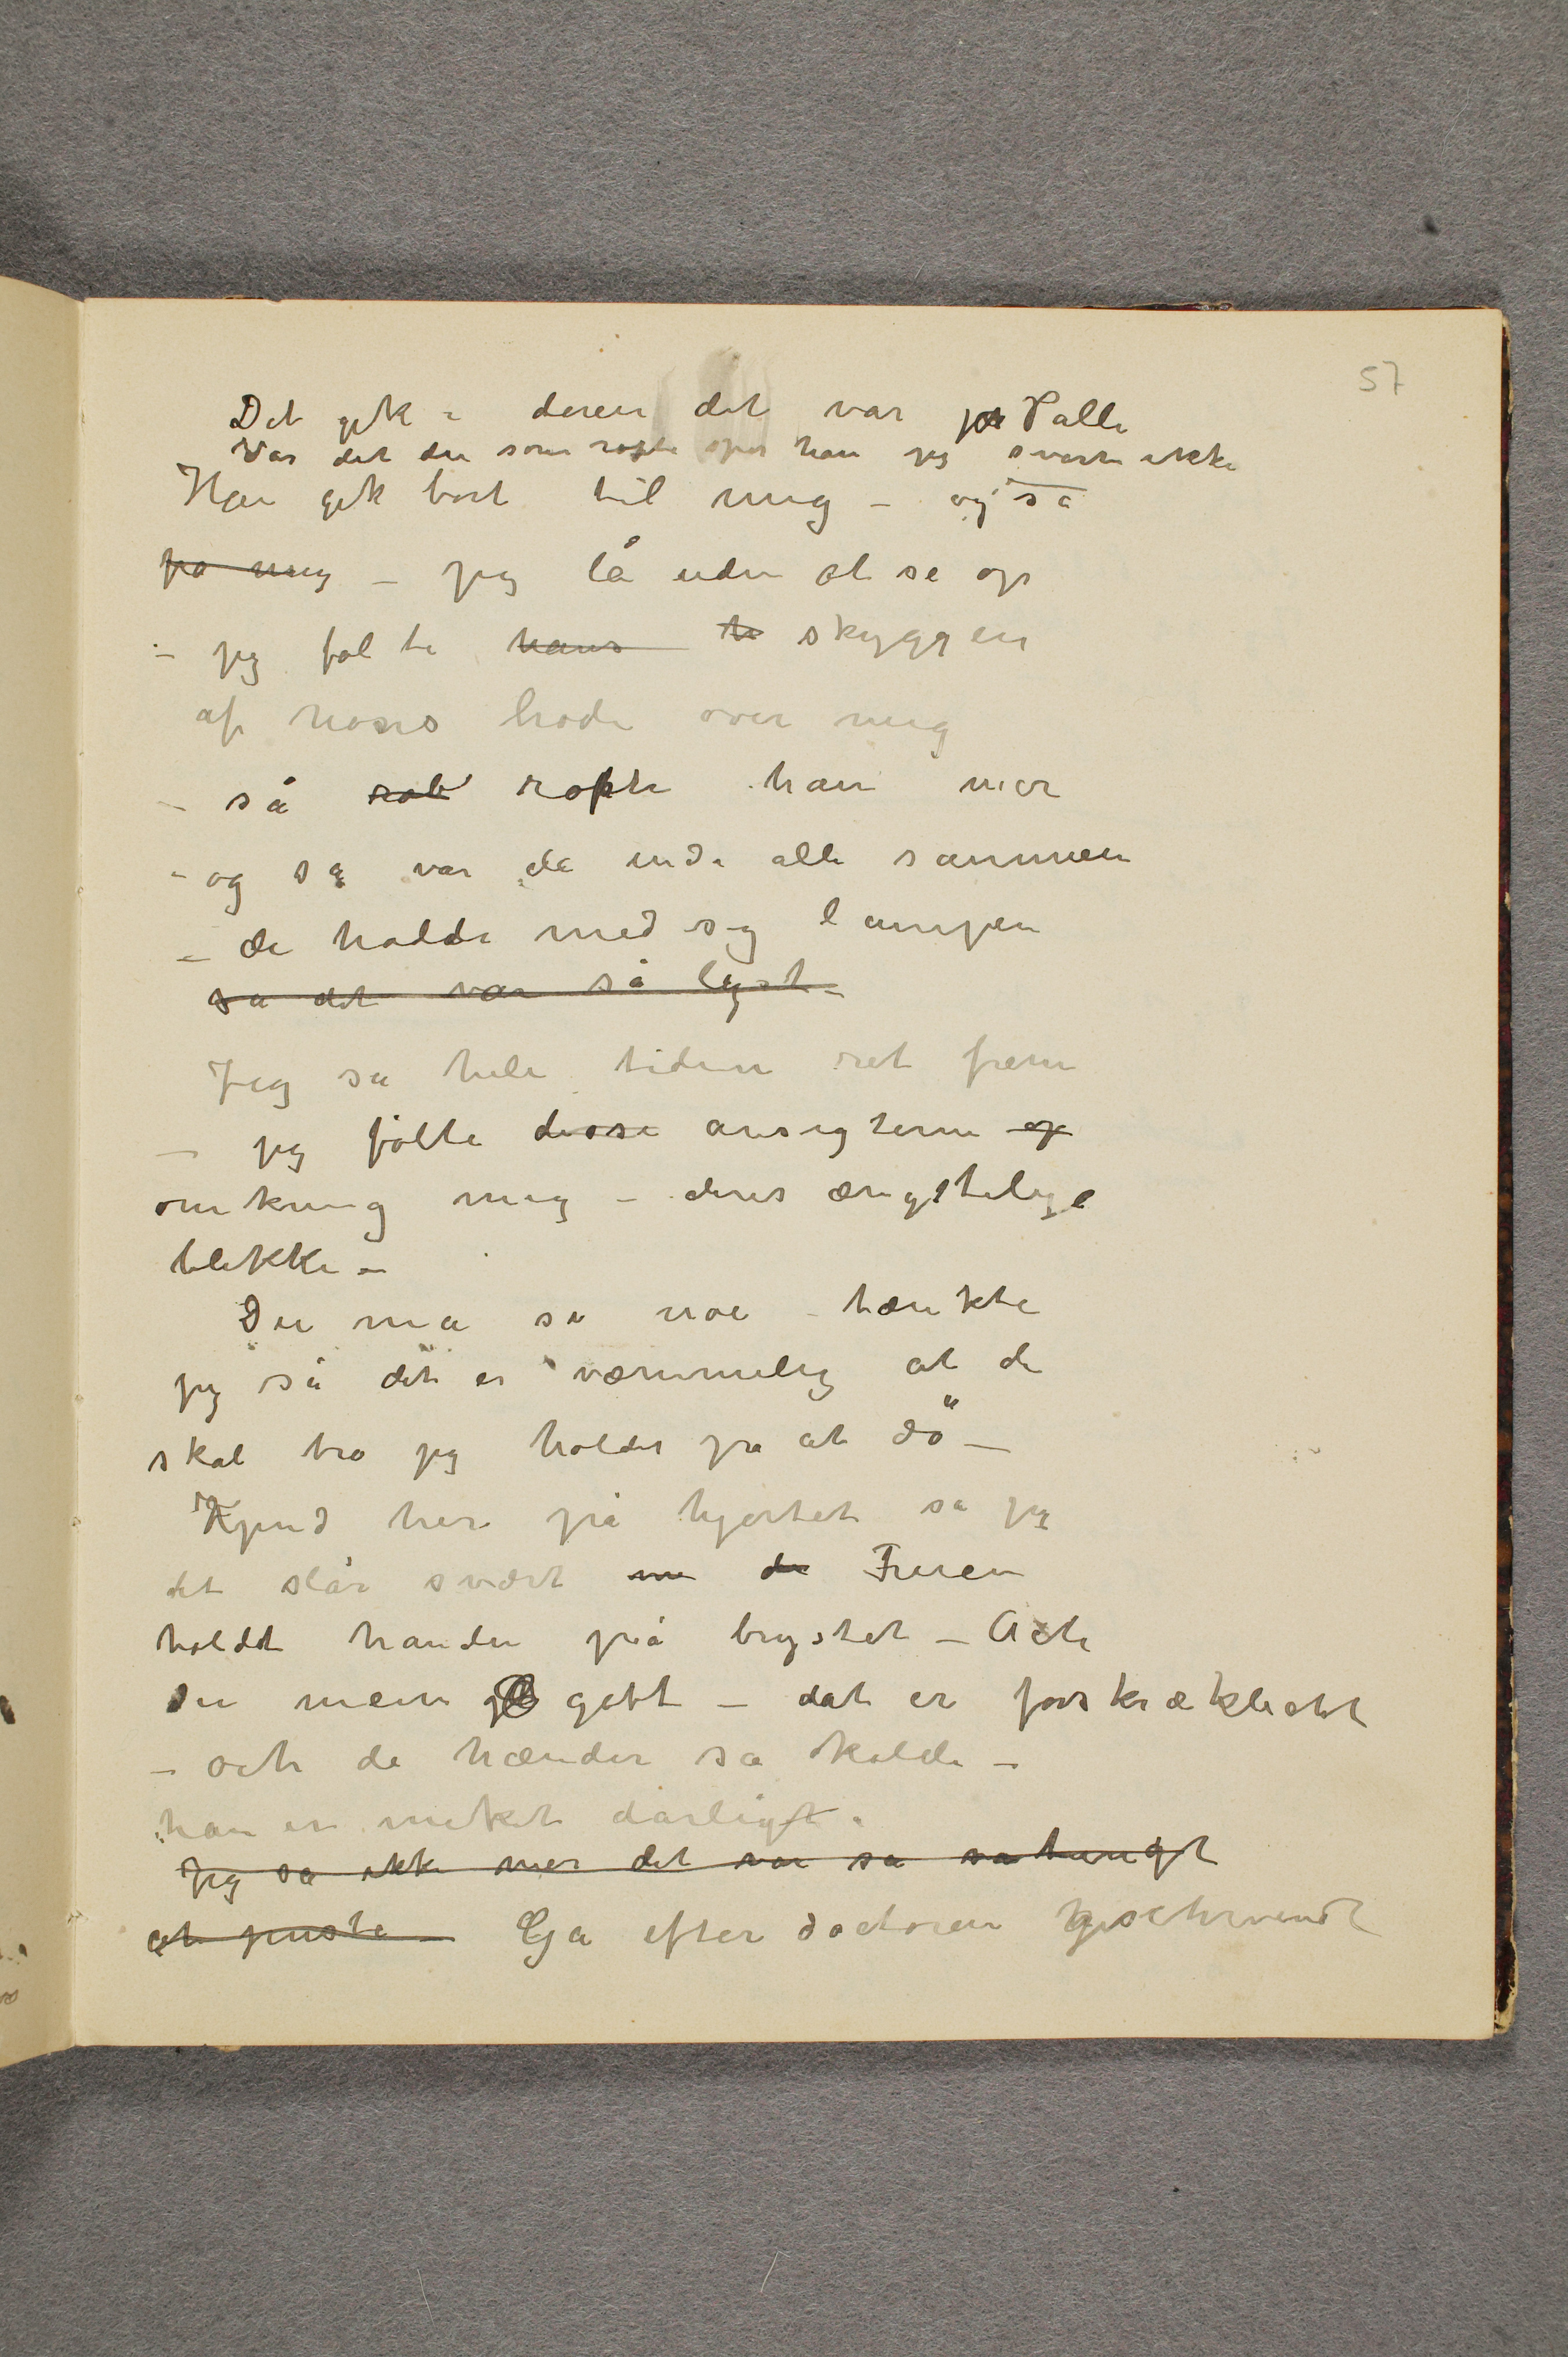 57
Det gik i døren det var Palle
Var det du som ropte spor han jeg svarte ikke
Han gik bort til mig – og så
på mig – jeg lå uden at se op
– jeg følte hans h skyggen
af hans hode over mig
– så rob ropte han mor
– og så var de inde alle sammen
– de hadde med sig lampen
så det var så lyst –
Jeg så hele tiden ret frem
– jeg følte disse ansigterne op
omkring mig – deres ængstelige
blikke –
Du må si noe – tænkte
jeg så det er væmmelig at de
skal tro jeg holder på at dö –
Kjend her på hjertet sa jeg
det slår svært Fruen
holdt handen på brystet – Ach
du mein gott – dat er forskrækliclet
– och de hænder så kolde –
han er meket darligt.
Jeg sa ikke mer det var så så tungt
at puste – Gå efter doctoren geschwindt